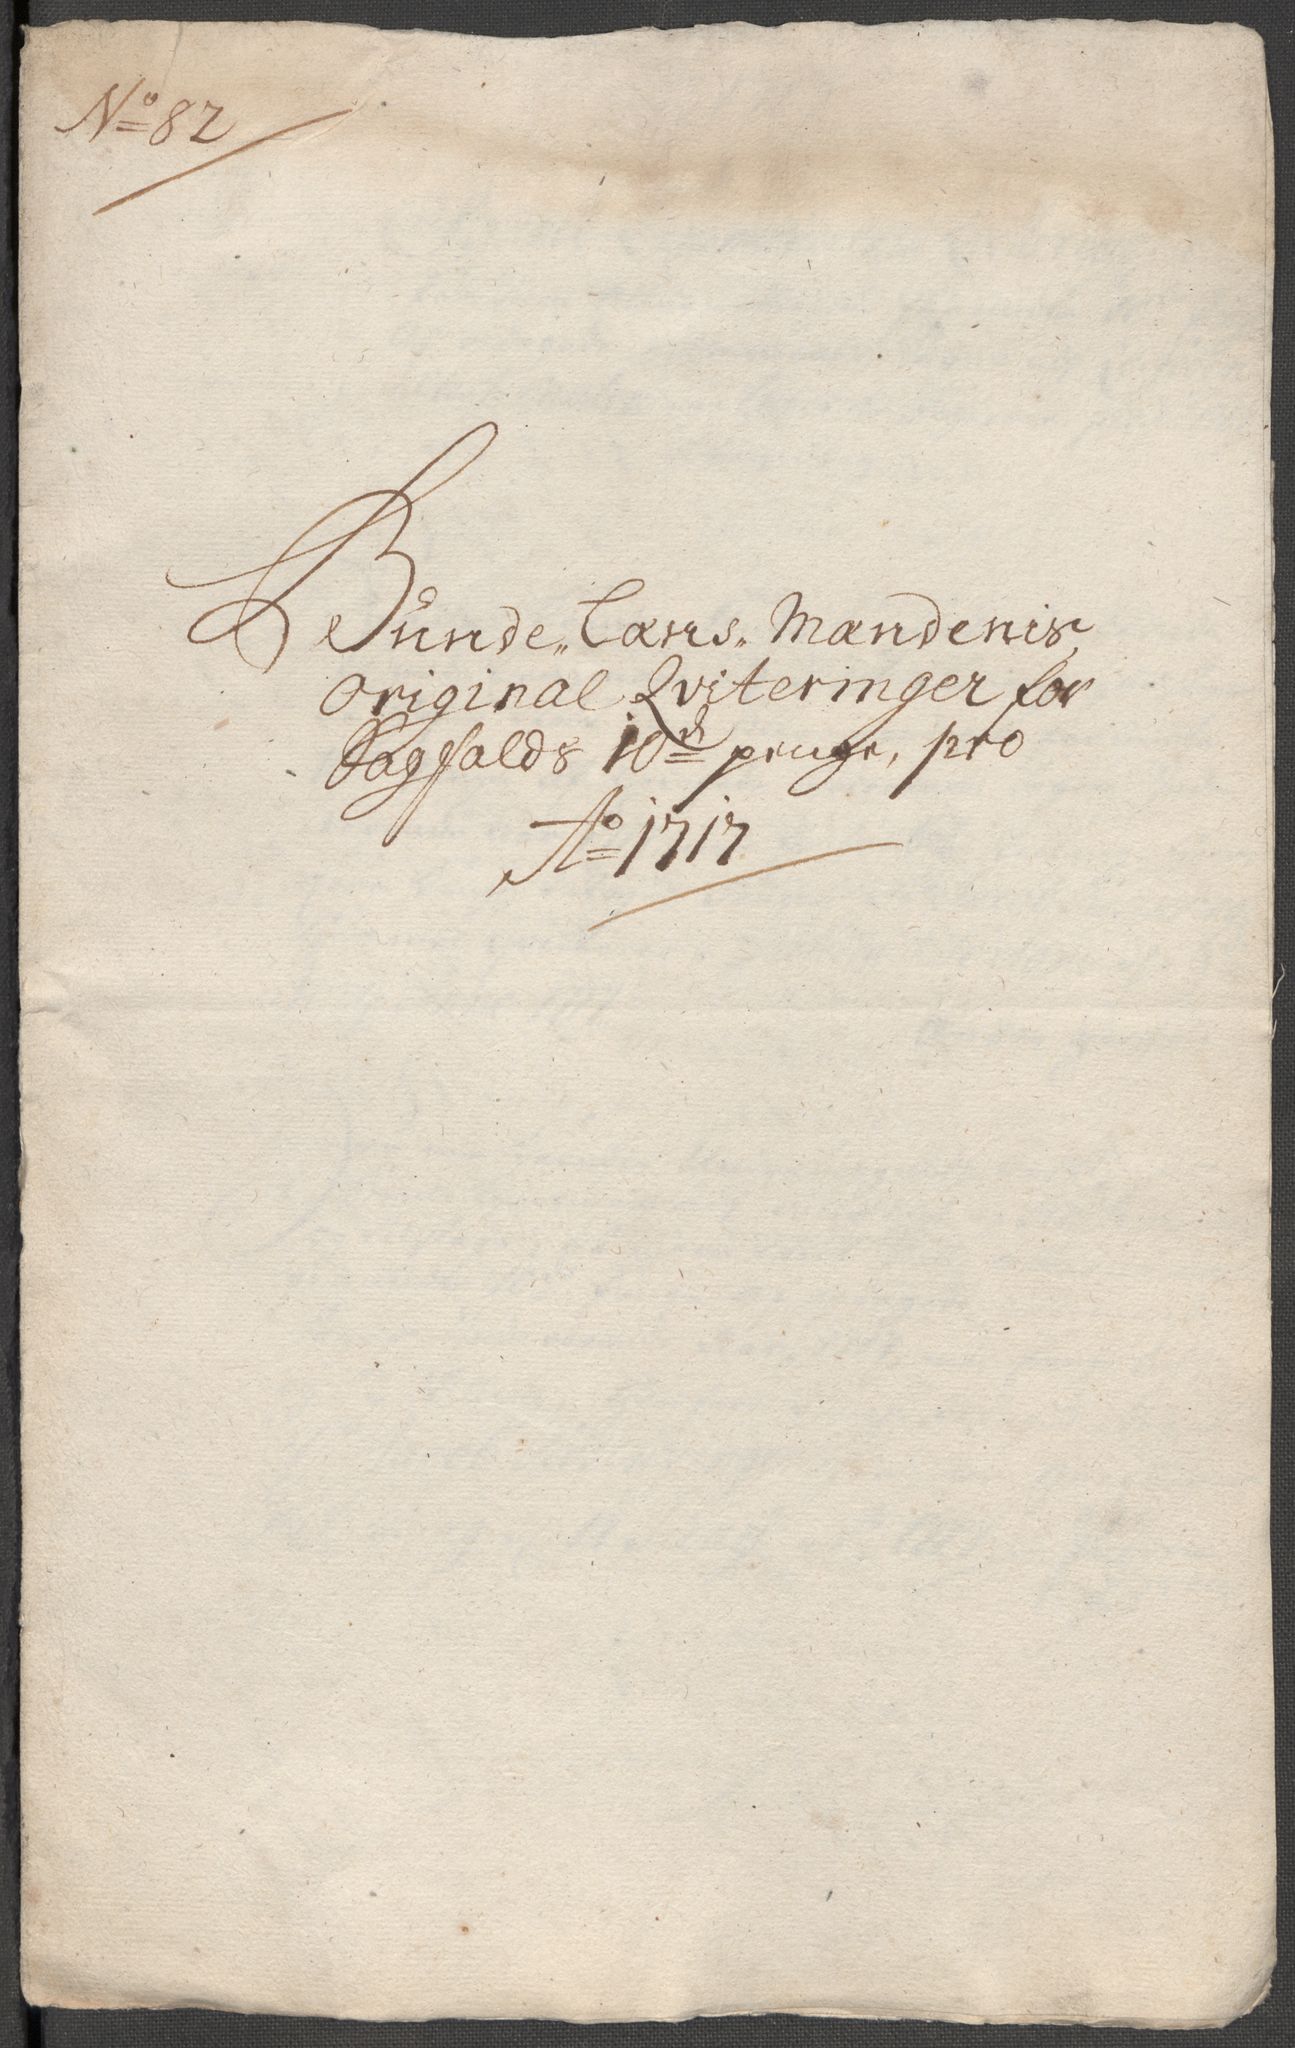 No 82
Bunde„ Læns„ Mændenis
Original Qviteringer for
Sagfalds 10d penge, pro
Ao 1717